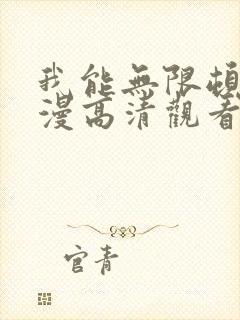 我能無限頓
漫高清觀看
官青